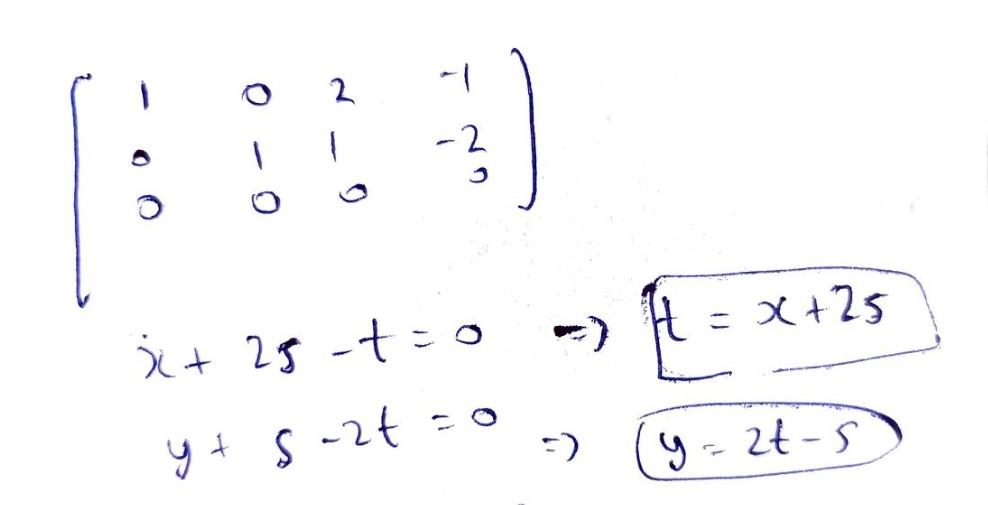 1 0 2 -1
0 1 1 -2
0 0 0 0
x + 2s - t = 0 => t = x + 2s
y + s - 2t = 0 => y = 2t - s